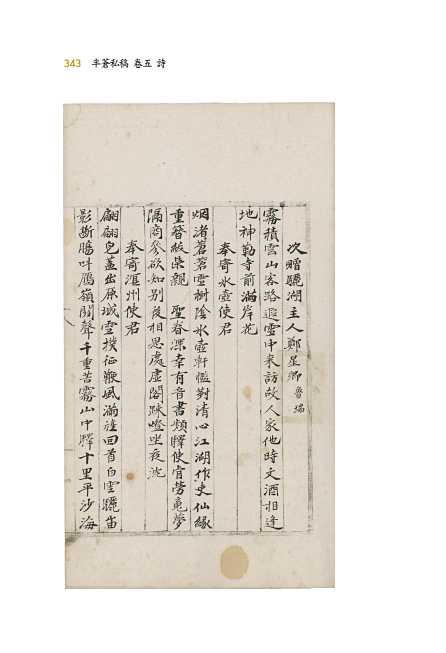 343 半蒼私稿 卷五 詩
次贈驪湖主人鄭星卿 魯瑞
霧積雲山客路遐雪中來訪故人家他時文酒相逢
地神勒寺前滿岸花
奉寄氷壺使君
烟渚蒼茗雪樹陰氷壺軒檻對清心江湖作吏仙緣
重簪紱朱親 聖眷深幸有音書頻驛使肯勞魂夢
隔商參欲知別後相思處虛閣踈燈坐夜沈
奉寄 州使君
翩翩皂盖出原城雪撲征鞭風滿旌回首白雲驪岳
影斷膓叫鴈嶺關聲千重苦霧山中驛十里平沙海